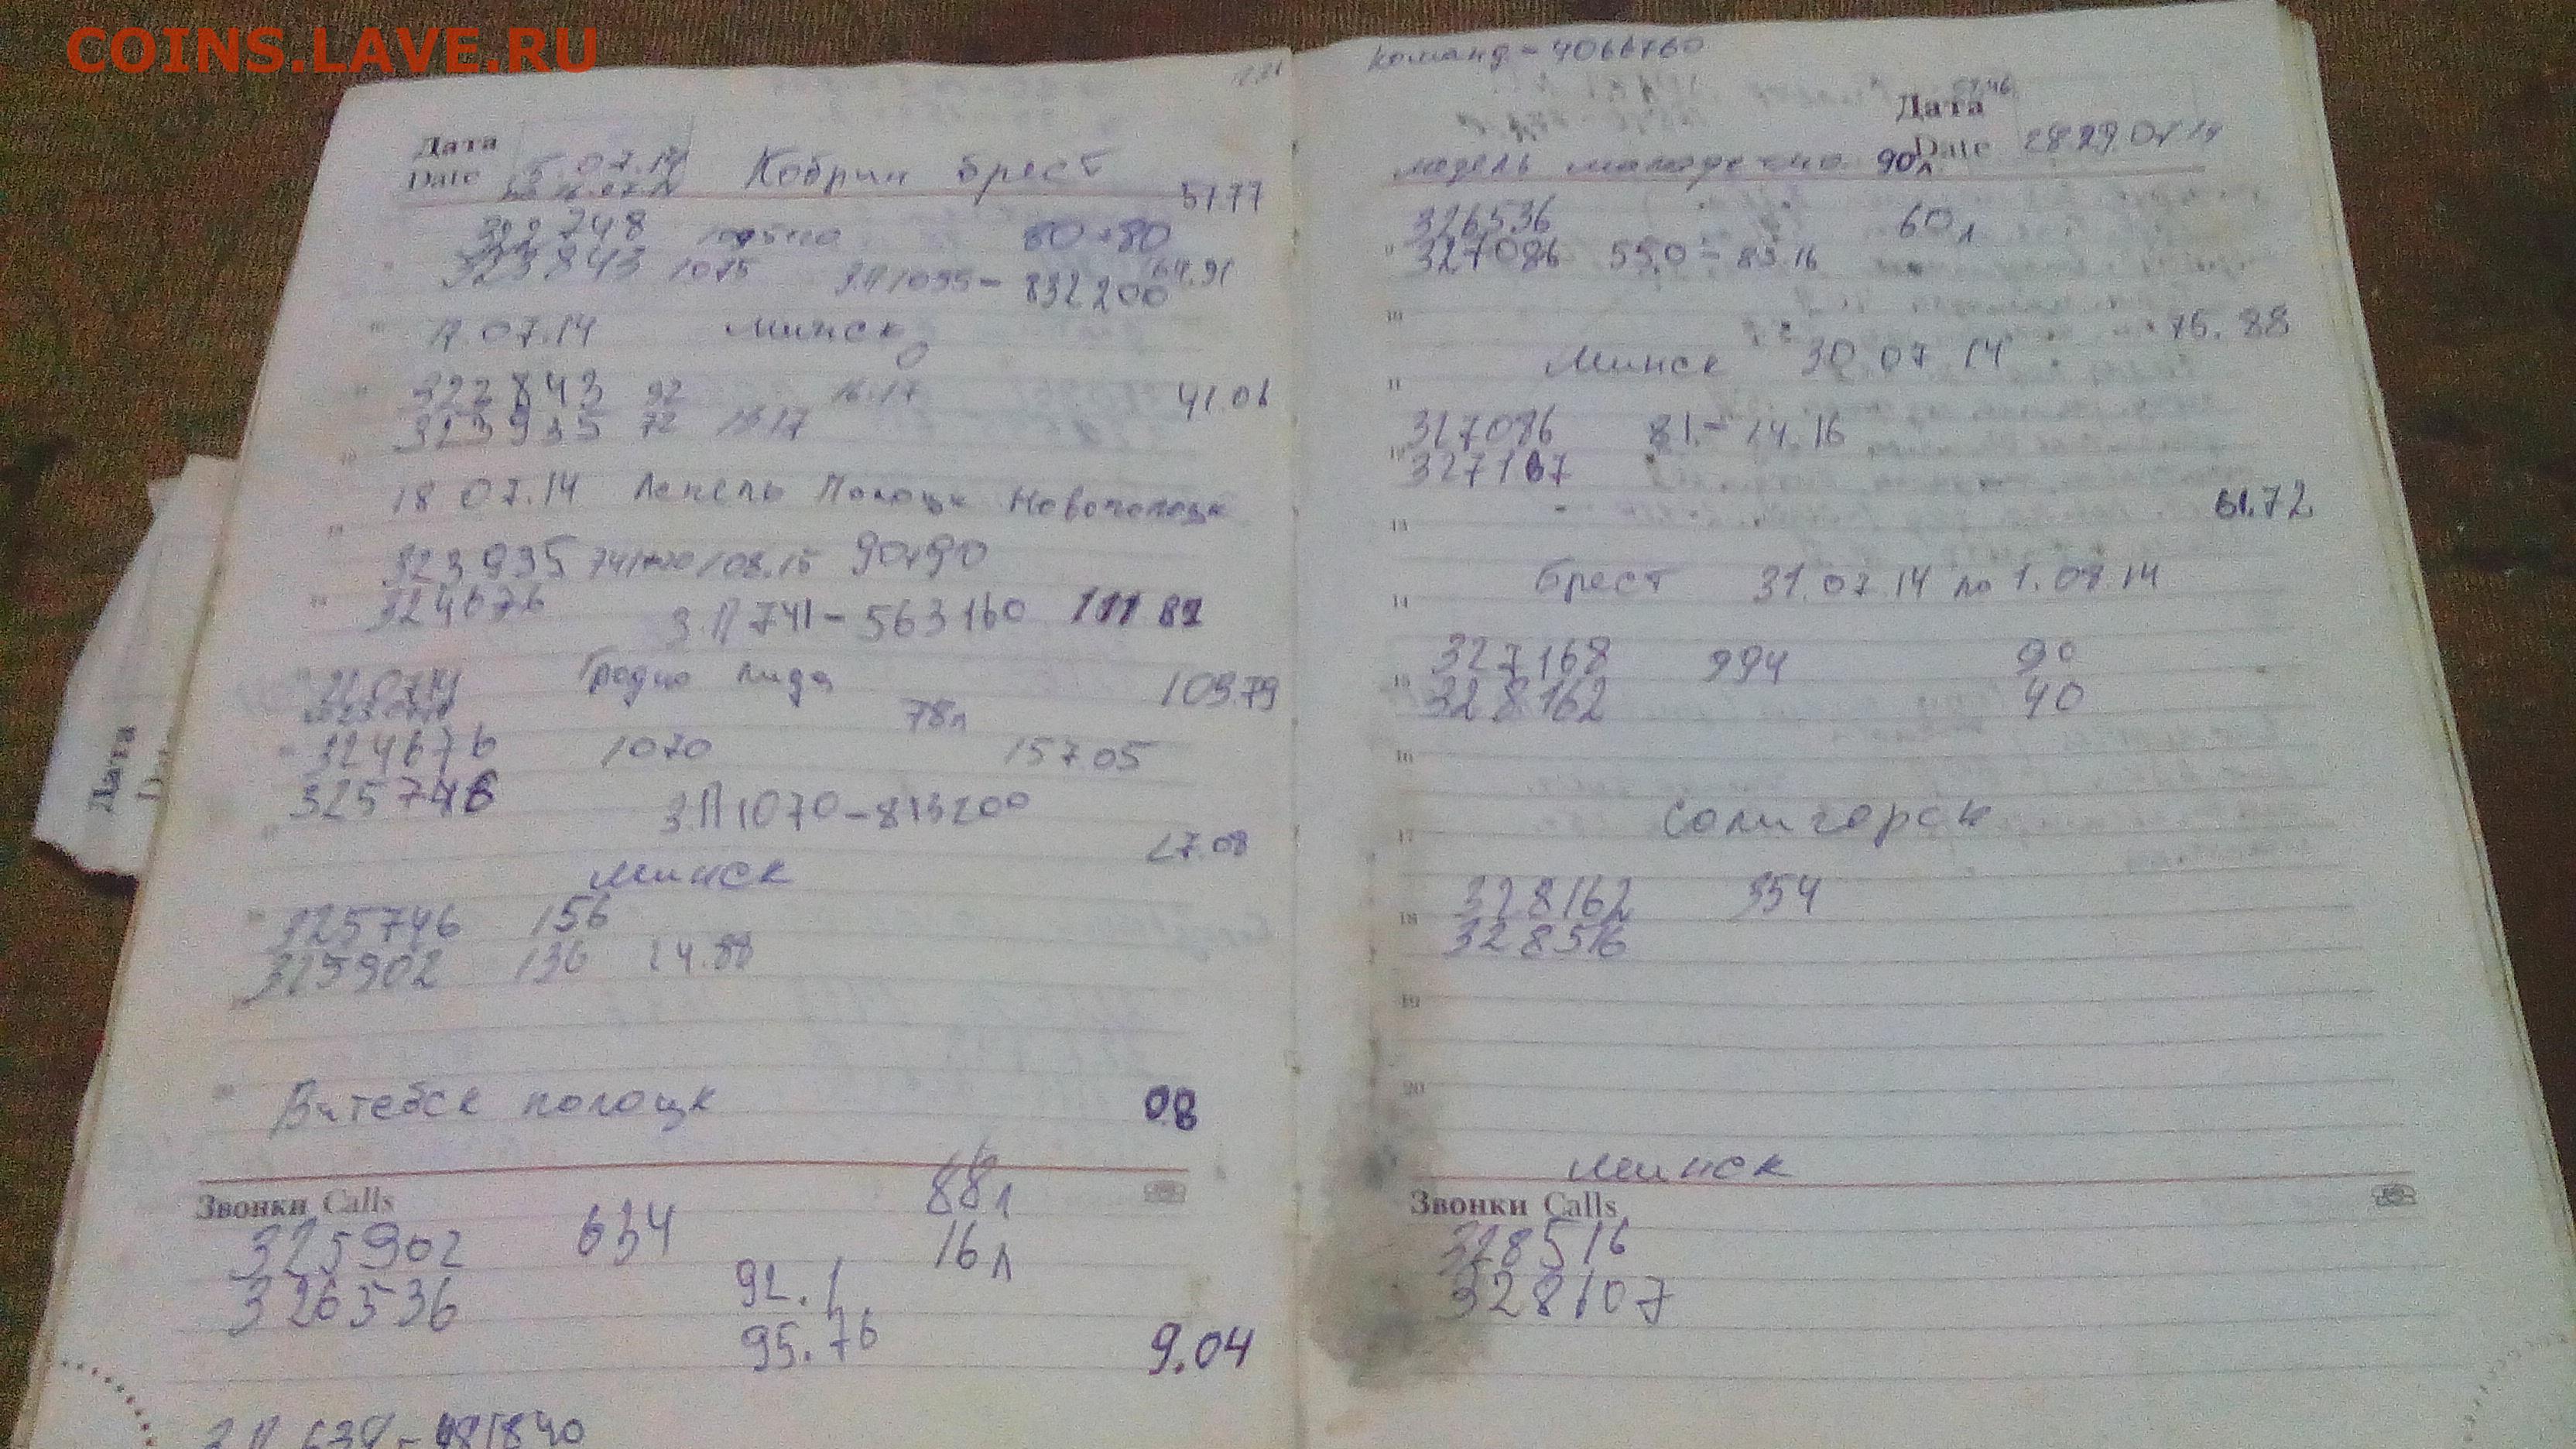 COINS.LAVE.RU
Дата
Date 5.07.14 Кобрин Брест
51.77
322748 80+80
323843 1095 З.П 1095 - 832200 64.91
17.07.14 Минск
322843 92 16.17 41.06
323935 72 16.17
18 07.14 Лепель Полоцк Новополоцк
323935 741 108.15 90+90
324676 З.П 741 - 563160 111 82
Гродно Лида 103.79
78л
324676 1070 157 05
325746 З.П 1070 - 813200
27.08
Минск
325746 156
325902 136 24.88
Витебск полоцк 08
Звонки Calls
88л
325902 634 16л
326536 92.1
95.76 9.04
З.П 634 - 481840
команд - 4066760
Дата
Date 28 29.07.14
молодечно 90л
326536 60л
327086 550 - 83.16
75.88
Минск 30 07 14
327086 81 - 14.16
327167
61.72
Брест 31.07.14 по 1.08.14
327168 994 90
328162 40
Солигорск
328162 354
328516
Минск
Звонки Calls
328516
328607